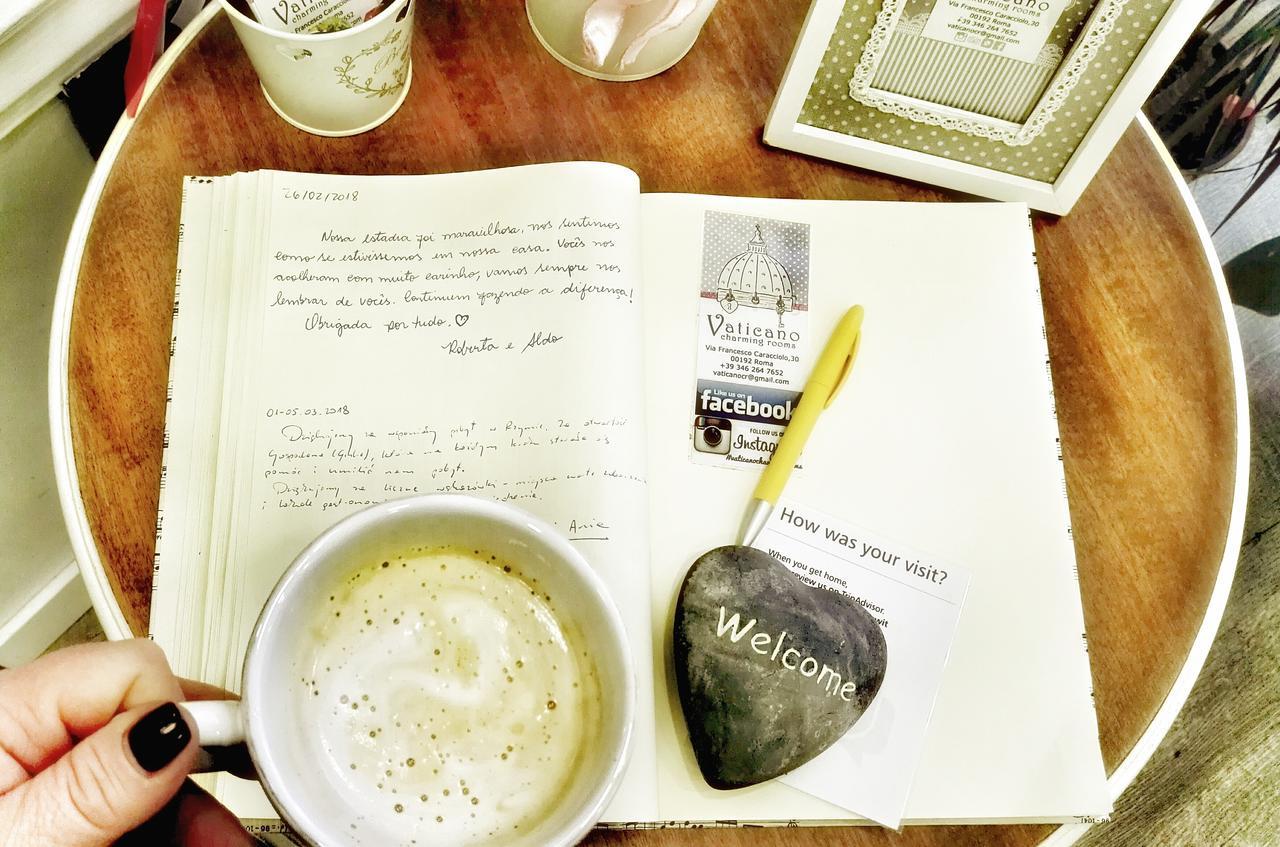 Vaticano
charming rooms
Francesco Caracciolo,30
Via Francesco Caracciolo,30
00192 Roma
+39 346 264 7652
vaticanocr@gmail.com
26/02/2018
Nossa estadia foi maravilhosa, nos sentimos
como se estivéssemos em nossa casa. Vocês nos
acolheram com muito carinho, vamos sempre nos
lembrar de vocês. Continuem fazendo a diferença!
Obrigada por tudo. ♡
Roberta e Aldo
01-05.03.2018
Dziękujemy za wspaniały pobyt w Rzymie. Za otwartość
Gospodarza (Giulio), który na każdym kroku starał się
pomóc i umilić nam pobyt.
Dziękujemy za liczne wskazówki - miejsca warte
i
Ania
Vaticano
charming rooms
Via Francesco Caracciolo,30
00192 Roma
+39 346 264 7652
vaticanocr@gmail.com
Like us on
facebook
FOLLOW US ON
Instag
How was your visit?
When you get home,
review us on TripAdvisor.
Welcome